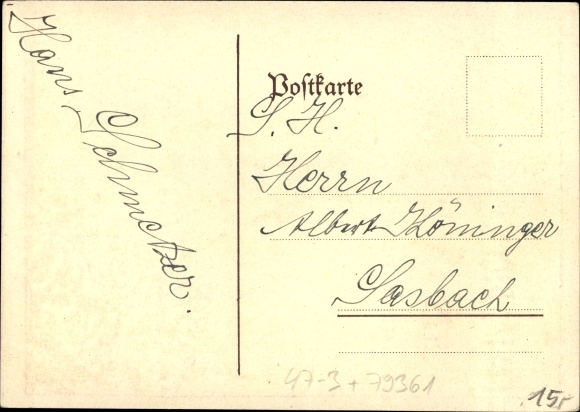 Hans Schmetzer.
Postkarte
S. H.
Herrn
Albert Höninger
Sasbach
47-3 + 79361
15,-